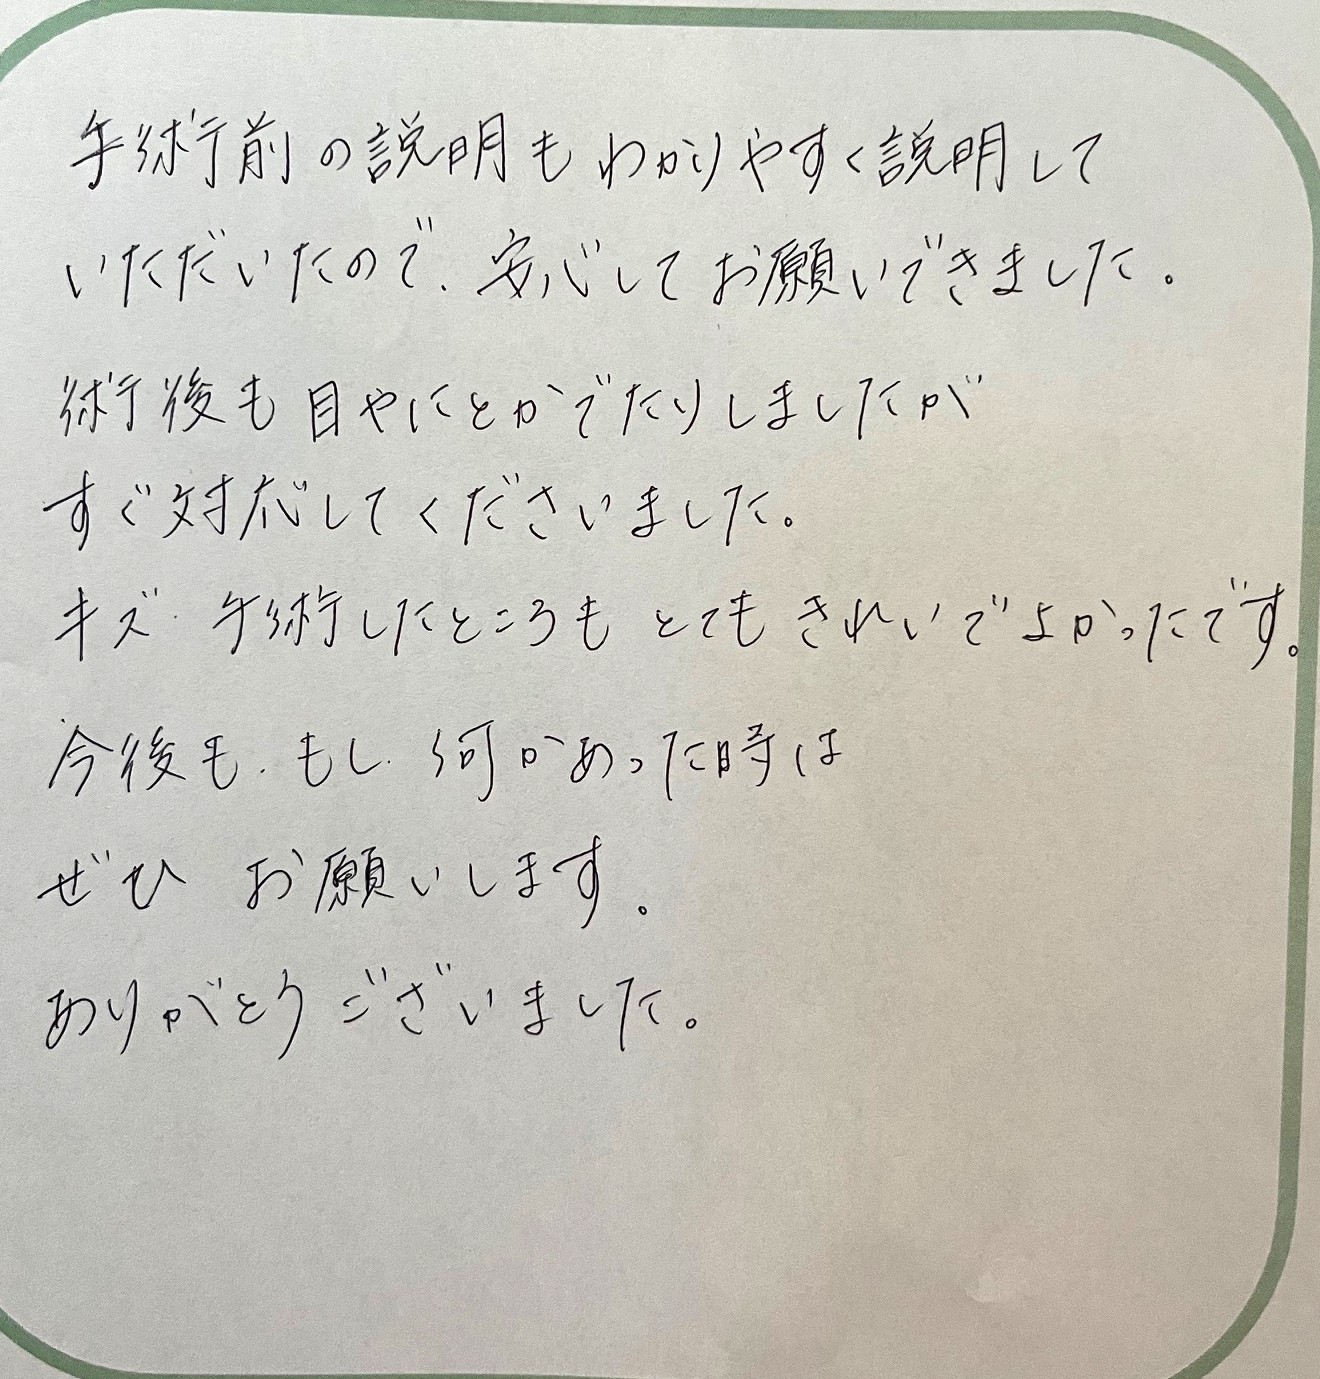 手術前の説明もわかりやすく説明して
いただいたので、安心してお願いできました。
術後も目やにとかでたりしましたが
すぐ対応してくださいました。
キズ、手術したところも とても きれいでよかったです。
今後も、もし、何かあった時は
ぜひ お願いします。
ありがとうございました。